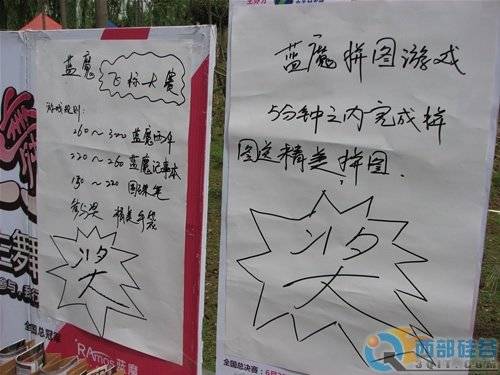 蓝魔
飞标大赛
游戏规则:
260～320 蓝魔雨伞
220～260 蓝魔记事本
180～220 圆珠笔
参与奖 精美手袋
奖
全国总冠军
RAmos 蓝魔
蓝魔拼图游戏
5分钟之内完成拼
图送精美拼图.
奖
全国总决赛: 6月
西部硅谷